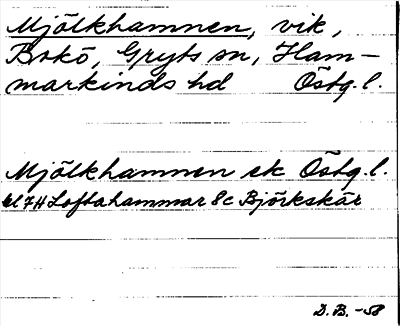 Mjölkhamnen, vik,
Bokö, Gryts sn, Ham-
markinds hd Östg. l.
Mjölkhamnen ek Östg. l.
bl 7H Loftahammar 8c Björkskär
D. B. -58